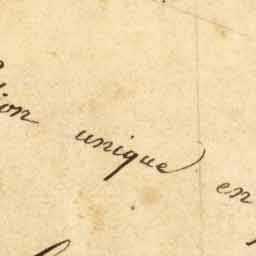 ion unique) en